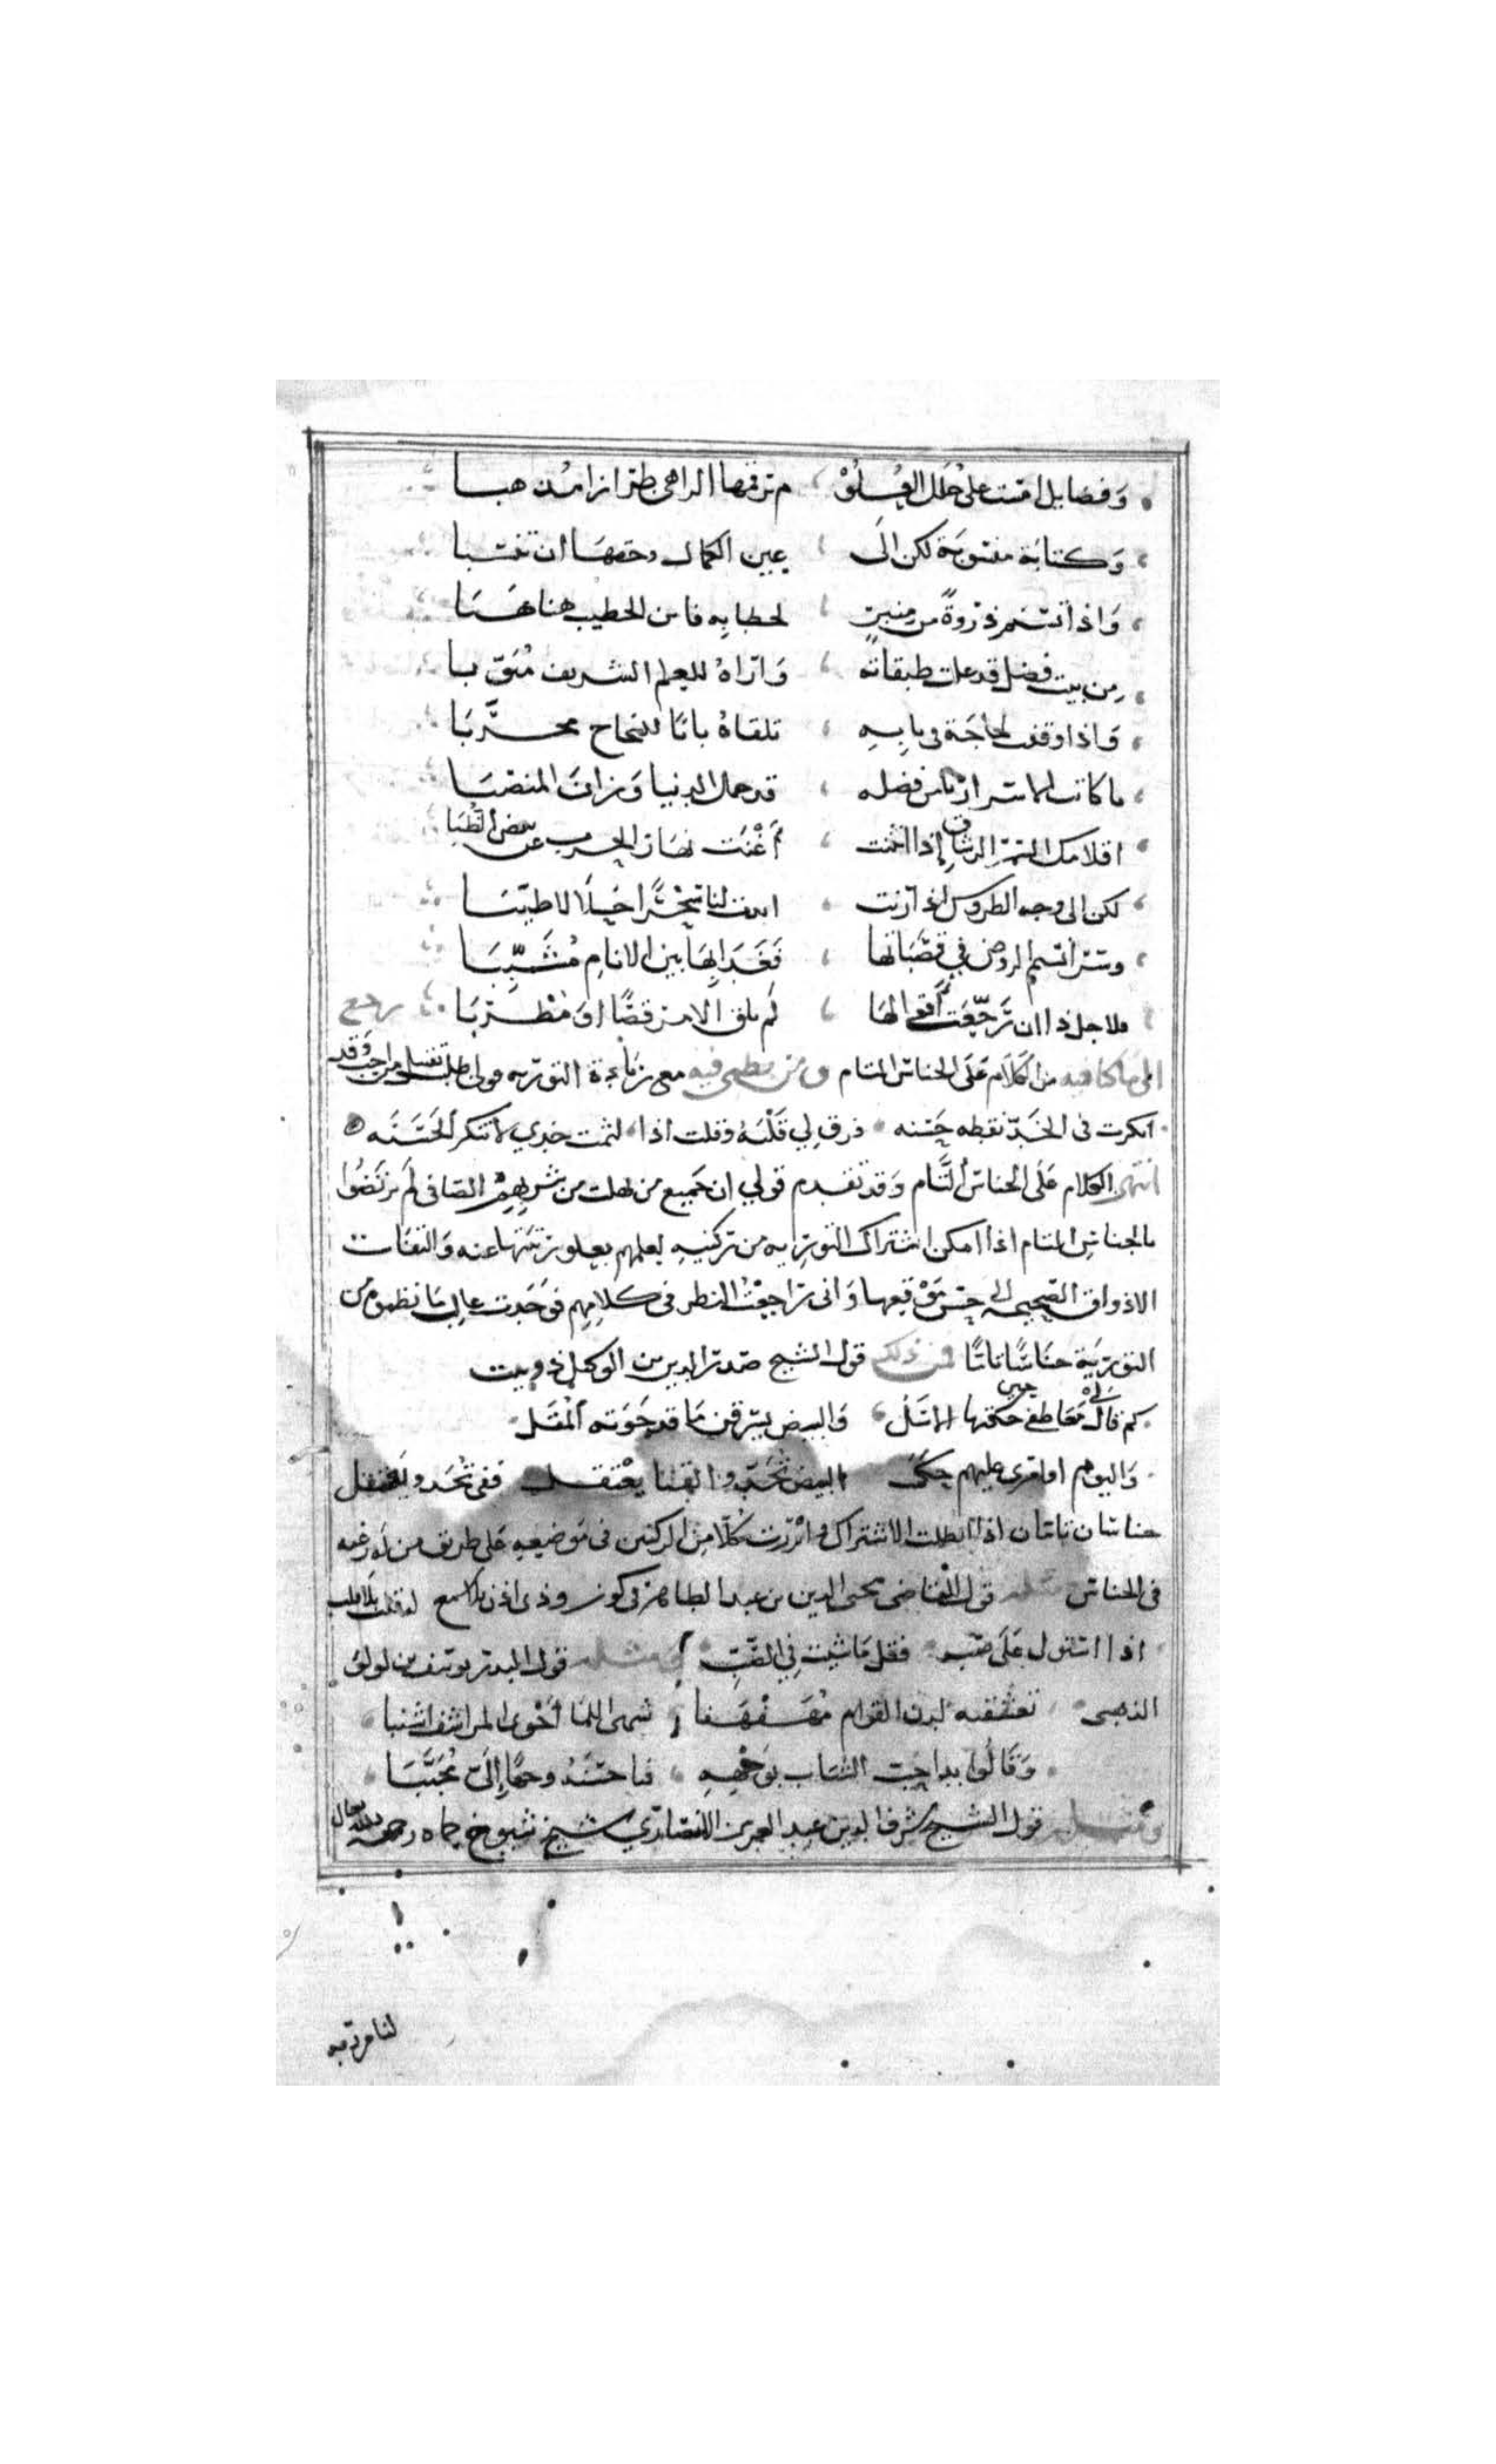 وفضايل امست على حلل العلو م ترقمها الزاهى طرازا مذهبا
وكتابة منسوبة لكن الى عين الكمال وحقها ان تنسبا
واذا تسنم ذروة من منبر لخطابه فاين الخطيب هنا هبا
من بيت فضل قد علت طبقاته واراه للعلم الشريف مبوبا
واذا وقفت لحاجة فى بابه تلقاه بابا للنجاح مجربا
يا كاتب الاسرار يا من فضله قد جمل الدنيا وزان المنصبا
اقلامك السمر الرشاق إذا انثنت أغنت نهار الحرب عن بيض الظبا
لكن الى وجه الطروس اذا رنت ابدت لنا سحرا حلالا طيبا
وسرا نسيم الروض في قصباتها فغدا لها بين الانام مشببا
فلاجل ذا ان رجعت أقوالها لم يلق الا مرقصا او مطربا رجع
الى ما كنا فيه من الكلام على الجناس التام ومن نظمى فيه مع زيادة التورية قولى
انكرت فى الخد نقطه حسنه فرق لي قلبه وقلت اذا لثمت خدي لا تنكر الحسنه
انتهى الكلام على الجناس التام وقد تقدم قولي ان جميع من نهلت من شربهم الصافى لم يرضوا
بالجناس التام اذا امكن اشتراك التورية من تركيبه لعلمهم بعلو رتبتها عنه والتفات
الاذواق الصحيحه الى حسن موقعها وانى راجعت النظر فى كلامهم فوجدت غالب ما نظموه من
التورية جناسا تاما فمن ذلك قول الشيخ صدر الدين بن الوكيل ذوبيت
كم قال معاطفي حكتها الاسل والبيض يسرقن ما قد حوته المقل
واليوم اوامرى عليهم حكمت البيض تحد والقنا يعتقل ففى تحد ويعتقل
جناسان تامان اذا ابطلت الاشتراك وابرزت كلا من الركنين فى موضعه على طريق من له رغبه
فى الجناس مثله قول القاضى محيى الدين بن عبد الظاهر فى كوز وذى اذن بلا سمع له قلب بلا قلب
اذا استولى على صب فقل ما شيت فى الصب ومثله قول البدر يوسف بن لولؤ
الذهبى تعشقته لدن القوام مهفهفا شهى اللمى أحوى المراشف اشنبا
وقالوا بدا حب الشباب بوجهه فيا حسنه وجها إلى محببا
ومثله قول الشيخ شرف الدين عبد العزيز الانصاري شيخ شيوخ حماه رحمه الله تعالى